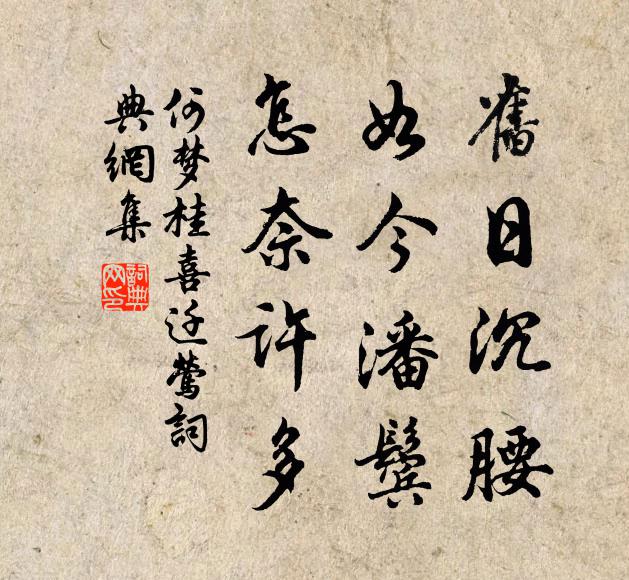 舊日沉腰
如今潘鬢
怎奈許多
何梦桂喜迁鶯詞
典網集
詞典
网印